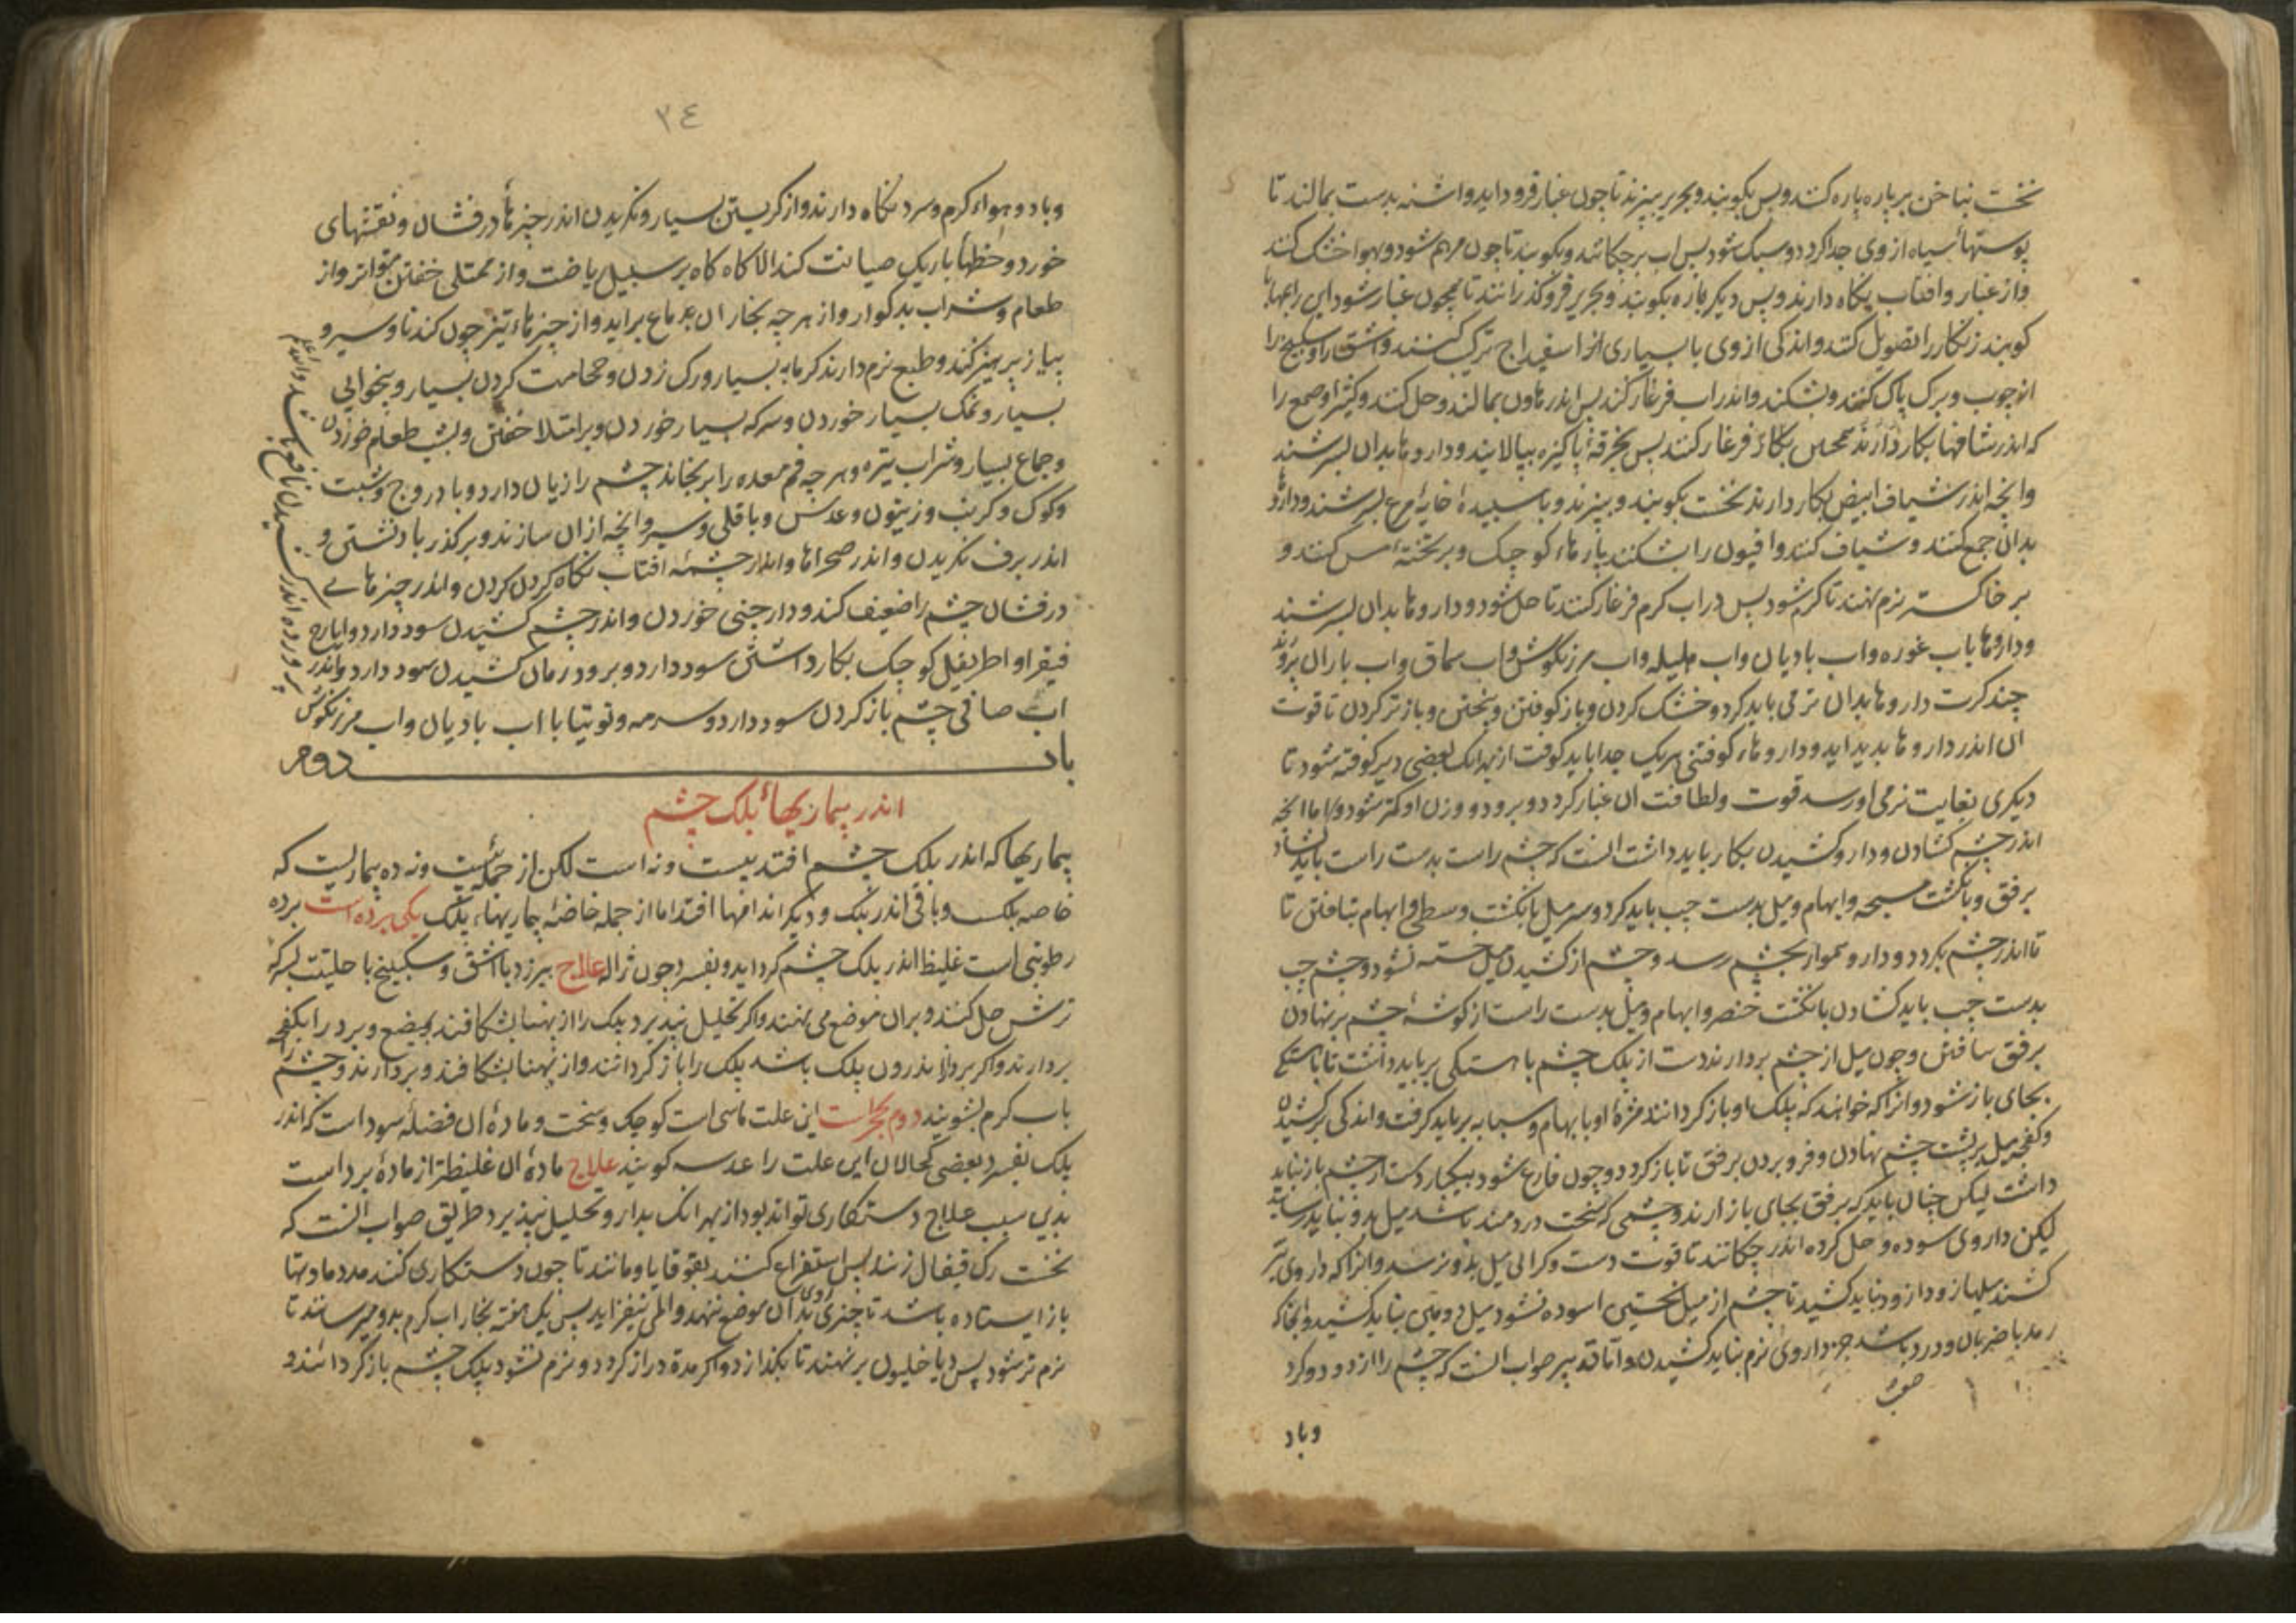 نخست بناخن بر پاره پاره کنند و پس بکوبند و بحریر ببیزند تا چون غبار فرود اید و اشنه بدست بمالند تا
پوستهاء سیاه از وی جدا کردد و سبک شود پس اب برچکانند و بکوبند تا چون مرهم شود و بهوا خشک کنند
و از غبار و افتاب نکاه دارند و پس دیکر باره بکوبند و بحریر فرو کذرانند تا همچون غبار شود این را
کوبند زنکار را تصویل کنند و اندکی از وی با بسیاری از اسفیداج ترکیب کنند و اشق را و سکبینج را
از چوب و برک پاک کنند و بشکنند و اندر اب فرغار کنند پس اندر هاون بمالند و حل کنند و کثیرا و صمغ را
که اندر شیافها بکار دارند همچنین یکان فرغار کنند پس بخرقهٔ پاکیزه بپالایند و داروها بدان بسرشند
و انچه اندر شیاف ابیض بکار دارند نخست بکوبند و ببیزند و با سپیدهٔ خایهٔ مرغ بسرشند و داروها
بدان جمع کنند و شیاف کنند و افیون را بشکنند پارهاء کوچک و بر تختهٔ مس کنند و
بر خاکستر نرم نهند تا کرم شود پس در اب کرم فرغار کنند تا حل شود و داروها بدان بسرشند
و داروها باب غوره و اب بادیان و اب هلیله و اب مرزنکوش و اب سماق و اب باران پرورند
چند کرت داروها بدان تر می باید کرد و خشک کردن و باز کوفتن و بیختن و باز تر کردن تا قوت
ان اندر داروها پدید اید و داروهاء کوفتنی هر یک جدا باید کوفت از بهر انک بعضی دیر کوفته شود تا
دیکری بغایت نرمی اورسد قوت و لطافت ان غبار کردد و برود و وزن او کمتر شود و اما انچه
اندر چشم کشادن و دارو کشیدن بکار باید داشت انست که چشم راست بدست راست باید کشاد
برفق و بانکشت مسبحه و ابهام و میل بدست چپ باید کرد و سر میل بانکشت وسطی و ابهام بتافتن تا
تا اندر چشم بکردد و دارو هموار بچشم رسد و چشم از کشیدن میل خسته نشود و چشم چپ
بدست چپ باید کشادن بانکشت خنصر و ابهام و میل بدست راست از کوشهٔ چشم بر نهادن
برفق بتافتن و چون میل از چشم بردارند دست از پلک چشم باهستکی بر باید داشت تا باهستکی
بجای باز شود و انرا که خواهند که پلک او باز کردانند مژهٔ او بابهام و سبابه بر باید کرفت و اندکی برکشیدن
و کفچه میل بر پشت چشم نهادن و فرو بردن برفق تا باز کردد و چون فارغ شود بیکبار دست از چشم باز نباید
داشت لیکن چنان باید که برفق بجای باز ارند و چشمی که سخت دردمند باشد میل بدو نباید رسانید
لیکن داروی سوده و حل کرده اندر چکانند تا قوت دست و کرانی میل بدو نرسد و انرا که داروی تیز
کشند میلها زود از زود نباید کشید تا چشم از میل نخستین اسوده نشود میل دومین نباید کشید و انجا که
رمد با ضربان و درد باشد جز داروی نرم نباید کشیدن و اما تدبیر صواب انست که چشم را از دود و کرد
صعب
وباد
٣٤
وباد و هواء کرم و سرد نکاه دارند و از کریستن بسیار و نکریدن اندر چیزهاء درفشان و نقشهای
خورد و خطهاء باریک صیانت کنند الا کاه کاه بر سبیل ریاضت و از ممتلی خفتن متواتر و از
طعام و شراب بدکوار و از هر چه بخار ان بدماغ براید و از چیزهاء تیز چون کندنا و سیر و
پیاز پرهیز کنند و طبع نرم دارند کرمابه بسیار و رک زدن و حجامت کردن بسیار و بیخوابی
بسیار و نمک بسیار خوردن و سرکه بسیار خوردن و بر امتلا خفتن و بشب طعام خوردن
و جماع بسیار و شراب تیره و هر چه فم معده را برنجاند چشم را زیان دارد و بادروج و شبت
و کوک و کرنب و زیتون و عدس و باقلی و سیر و انچه از ان سازند و بر کذر باد نشستن و
اندر برف نکریدن و اندر صحراها و اندر چشمهٔ افتاب نکاه کردن کردن و اندر چیزهاے
درفشان چشم را ضعیف کند و دارچینی خوردن و اندر چشم کشیدن سود دارد و ایارج
فیقرا و اطریفل کوچک بکار داشتن سود دارد و برود رمان کشیدن سود دارد و اندر
اب صافی چشم باز کردن سود دارد و سرمه و توتیا با اب بادیان و اب مرزنکوش
پرورده اندر کشیدن نافع باشد والله اعلم
باب دوم
اندر بیماریهاء پلک چشم
بیماریها که اندر پلک چشم افتد بیست و نه است لکن از جملهٔ بیست و نه ده بیماریست که
خاصه پلکست و باقی اندر پلک و دیکر اندامها افتد اما از جمله خاصهٔ بیماریهاء پلک یکی برده است برده
رطوبتی است غلیظ اندر پلک چشم کرد اید و بفسرد چون ژاله علاج بیرزد با اشق و سکبینج با حلتیت بسرکه
ترش حل کنند و بران موضع می نهند و اکر تحلیل نپذیرد پلک را از پهنا بشکافند بمبضع و برد را بکفچه
بردارند و اکر برد اندرون پلک باشد پلک را باز کردانند و از پهنا بشکافند و بردارند و چشم را
باب کرم بشویند دوم تحجر است این علت اماسی است کوچک و سخت و مادهٔ ان فضلهٔ سوداست که اندر
پلک بفسرد بعضی کحالان این علت را عدسه کویند علاج مادهٔ ان غلیظتر از مادهٔ برد است
بدین سبب علاج دستکاری تواند بود از بهر انک بدارو تحلیل نپذیرد طریق صواب انست که
نخست رک قیفال زنند پس استفراغ کنند بقوقایا و مانند تا چون دستکاری کنند مدد مادتها
باز ایستاده باشد تا چیزی بدان موضع ننهد و المی نیفزاید پس یک هفته بخار اب کرم بدو میرسانند تا
نرم تر شود پس دیاخلیون برنهند تا بکذازد و اکر مدة دراز کردد و نرم نشود پلک چشم باز کردانند و